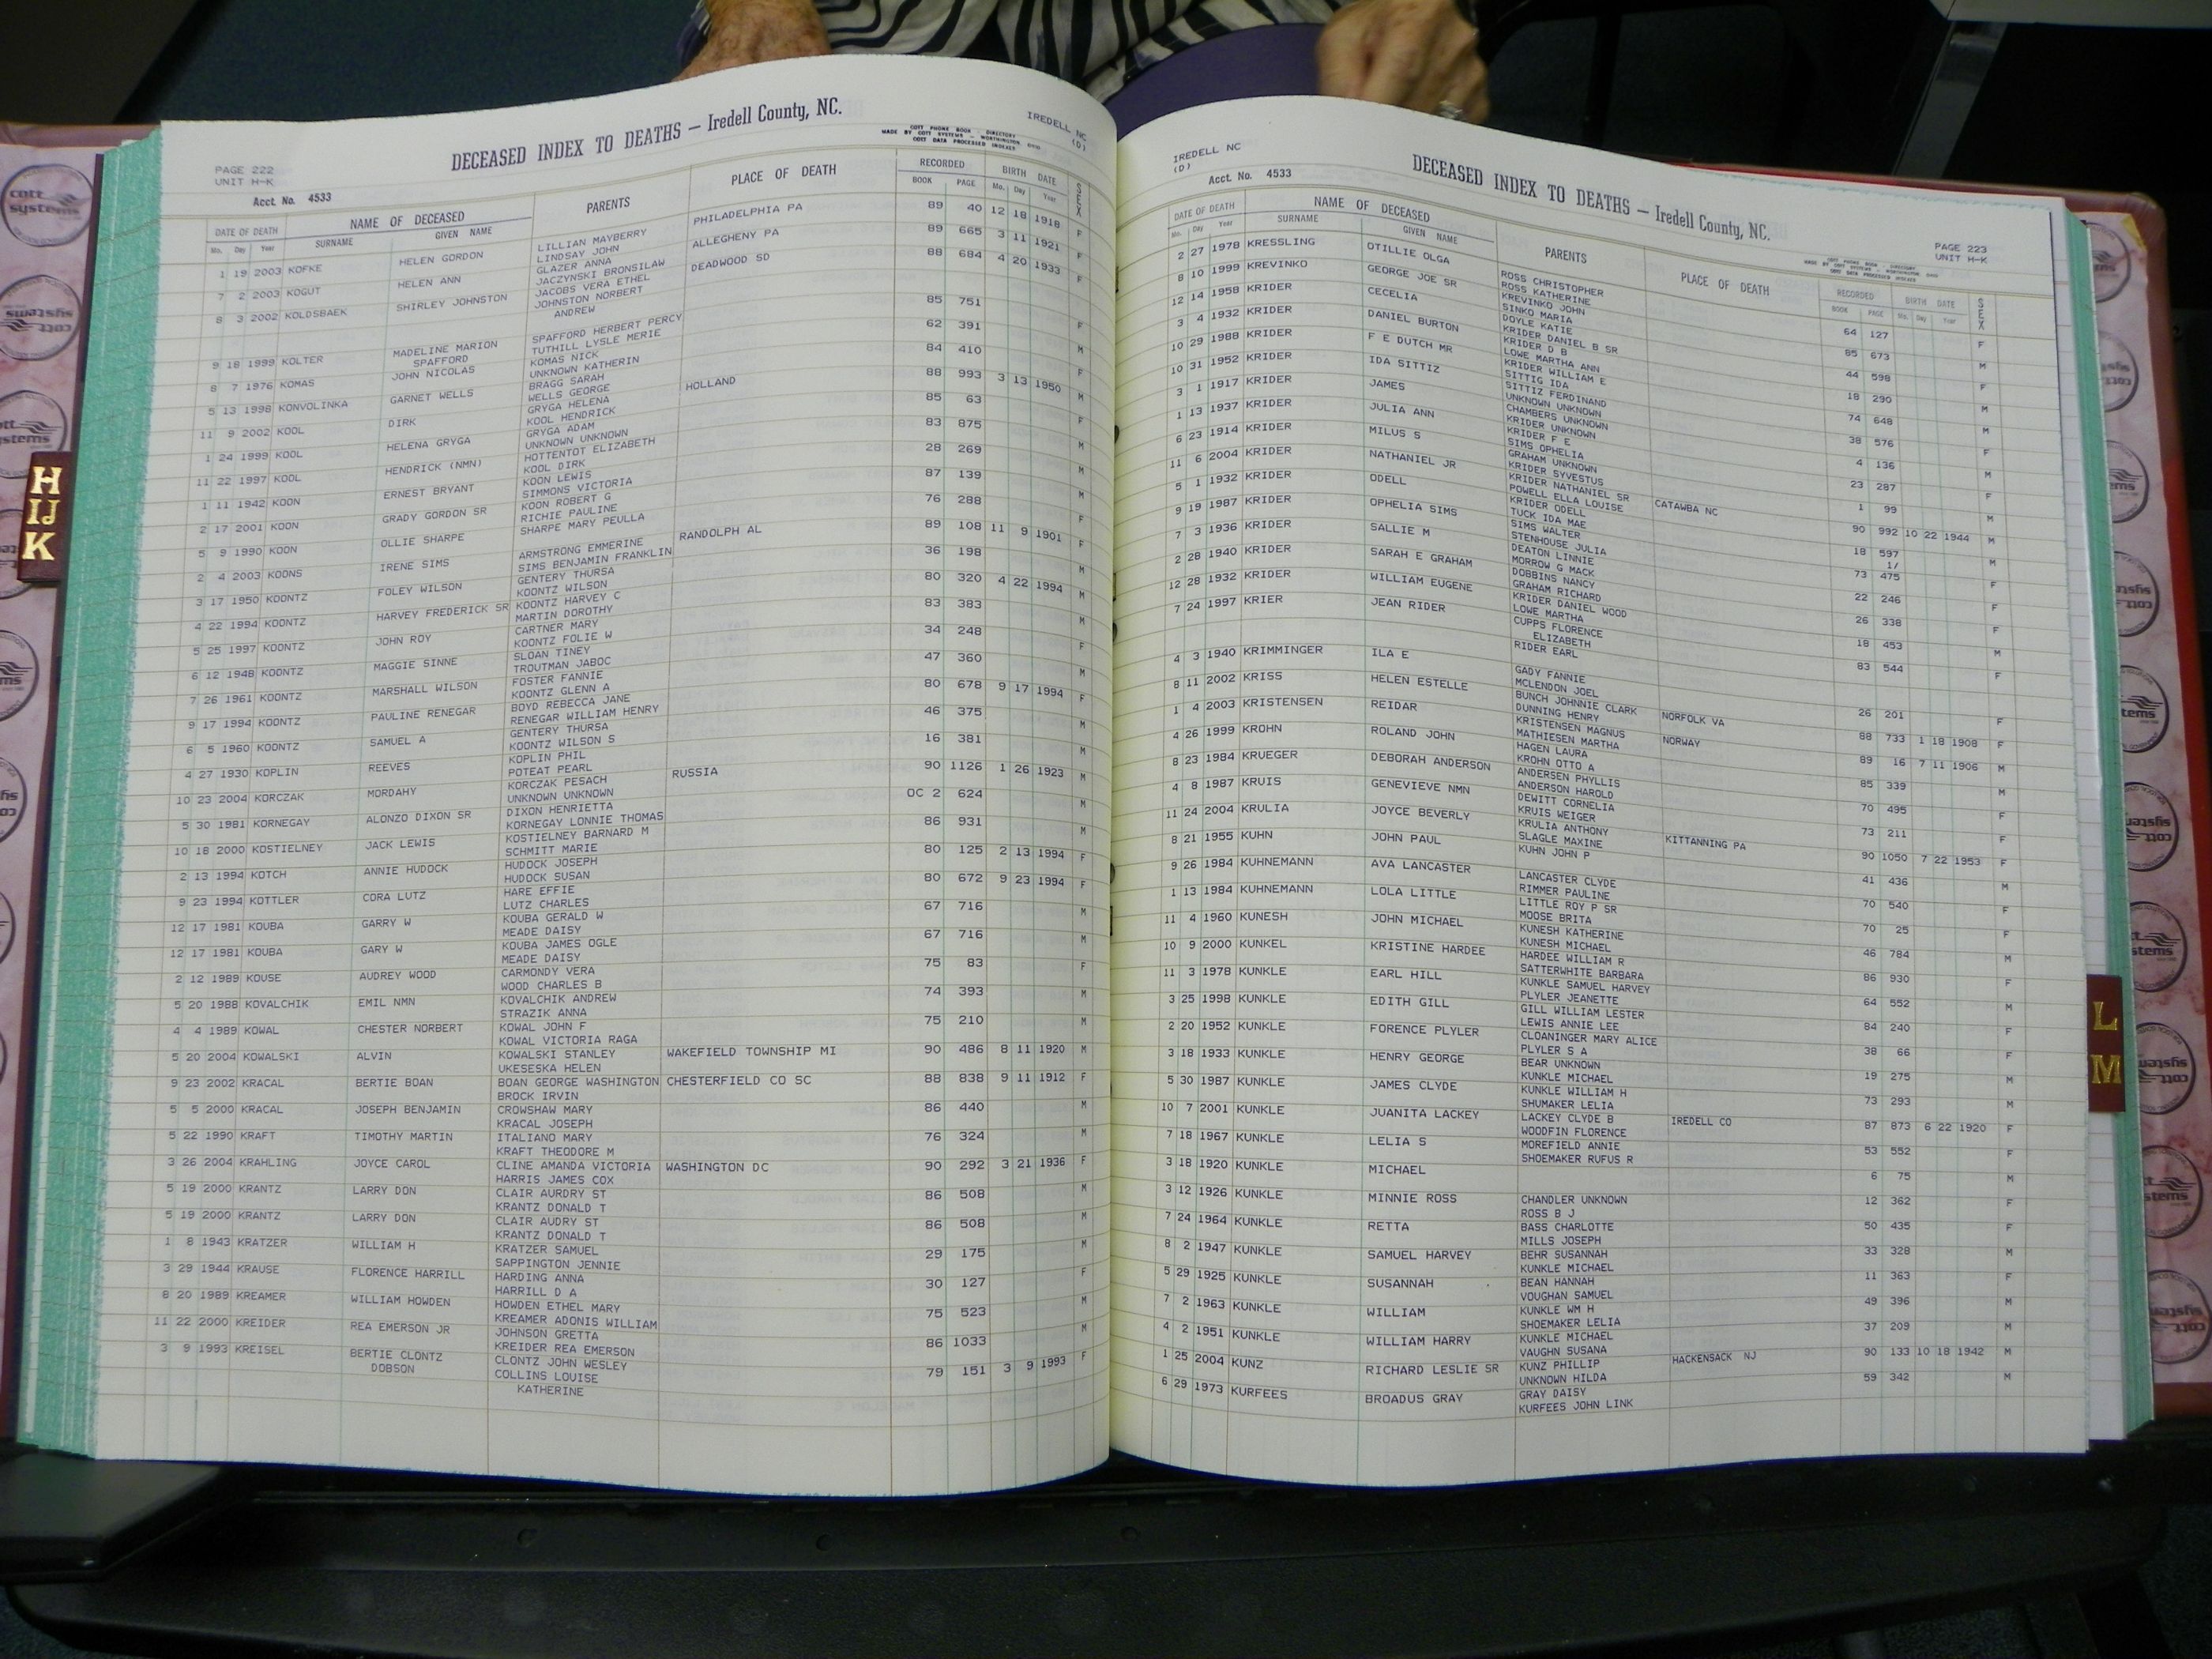 DECEASED INDEX TO DEATHS — Iredell County, NC.
IREDELL NC
(D)
COTT PHONE BOOK - DIRECTORY
MADE BY COTT SYSTEMS - WORTHINGTON OHIO
COTT DATA PROCESSED INDEXER
PAGE 222
UNIT H-K
Acct. No. 4533
DATE OF DEATH NAME OF DECEASED PARENTS PLACE OF DEATH RECORDED BIRTH DATE SEX
Mo. Day Year SURNAME GIVEN NAME BOOK PAGE Mo. Day Year
1 19 2003 KOFKE HELEN GORDON LILLIAN MAYBERRY PHILADELPHIA PA 89 40 12 18 1918 F
LINDSAY JOHN
7 2 2003 KOGUT HELEN ANN GLAZER ANNA ALLEGHENY PA 89 665 3 11 1921 F
JACZYNSKI BRONSILAW
8 3 2002 KOLDSBAEK SHIRLEY JOHNSTON JACOBS VERA ETHEL DEADWOOD SD 88 684 4 20 1933 F
JOHNSTON NORBERT
ANDREW
9 18 1999 KOLTER MADELINE MARION SPAFFORD HERBERT PERCY 85 751 F
SPAFFORD TUTHILL LYSLE MERIE
8 7 1976 KOMAS JOHN NICOLAS KOMAS NICK 62 391 M
UNKNOWN KATHERIN
5 13 1998 KONVOLINKA GARNET WELLS BRAGG SARAH 84 410 F
WELLS GEORGE
11 9 2002 KOOL DIRK GRYGA HELENA HOLLAND 88 993 3 13 1950 M
KOOL HENDRICK
1 24 1999 KOOL HELENA GRYGA GRYGA ADAM 85 63 F
UNKNOWN UNKNOWN
11 22 1997 KOOL HENDRICK (NMN) HOTTENTOT ELIZABETH 83 875 M
KOOL DIRK
1 11 1942 KOON ERNEST BRYANT KOON LEWIS 28 269 M
SIMMONS VICTORIA
2 17 2001 KOON GRADY GORDON SR KOON ROBERT G 87 139 M
RICHIE PAULINE
5 9 1990 KOON OLLIE SHARPE SHARPE MARY PEULLA 76 288 F
2 4 2003 KOONS IRENE SIMS ARMSTRONG EMMERINE RANDOLPH AL 89 108 11 9 1901 F
SIMS BENJAMIN FRANKLIN
3 17 1950 KOONTZ FOLEY WILSON GENTERY THURSA 36 198 M
KOONTZ WILSON
4 22 1994 KOONTZ HARVEY FREDERICK SR KOONTZ HARVEY C 80 320 4 22 1994 M
MARTIN DOROTHY
5 25 1997 KOONTZ JOHN ROY CARTNER MARY 83 383 M
KOONTZ FOLIE W
6 12 1948 KOONTZ MAGGIE SINNE SLOAN TINEY 34 248 F
TROUTMAN JABOC
7 26 1961 KOONTZ MARSHALL WILSON FOSTER FANNIE 47 360 M
KOONTZ GLENN A
9 17 1994 KOONTZ PAULINE RENEGAR BOYD REBECCA JANE 80 678 9 17 1994 F
RENEGAR WILLIAM HENRY
6 5 1960 KOONTZ SAMUEL A GENTERY THURSA 46 375 M
KOONTZ WILSON S
4 27 1930 KOPLIN REEVES KOPLIN PHIL 16 381 M
POTEAT PEARL
10 23 2004 KORCZAK MORDAHY KORCZAK PESACH RUSSIA 90 1126 1 26 1923 M
UNKNOWN UNKNOWN
5 30 1981 KORNEGAY ALONZO DIXON SR DIXON HENRIETTA OC 2 624 M
KORNEGAY LONNIE THOMAS
10 18 2000 KOSTIELNEY JACK LEWIS KOSTIELNEY BARNARD M 86 931 M
SCHMITT MARIE
2 13 1994 KOTCH ANNIE HUDOCK HUDOCK JOSEPH 80 125 2 13 1994 F
HUDOCK SUSAN
9 23 1994 KOTTLER CORA LUTZ HARE EFFIE 80 672 9 23 1994 F
LUTZ CHARLES
12 17 1981 KOUBA GARRY W KOUBA GERALD W 67 716 M
MEADE DAISY
12 17 1981 KOUBA GARY W KOUBA JAMES OGLE 67 716 M
MEADE DAISY
2 12 1989 KOUSE AUDREY WOOD CARMONDY VERA 75 83 F
WOOD CHARLES B
5 20 1988 KOVALCHIK EMIL NMN KOVALCHIK ANDREW 74 393 M
STRAZIK ANNA
4 4 1989 KOWAL CHESTER NORBERT KOWAL JOHN F 75 210 M
KOWAL VICTORIA RAGA
5 20 2004 KOWALSKI ALVIN KOWALSKI STANLEY WAKEFIELD TOWNSHIP MI 90 486 8 11 1920 M
UKESESKA HELEN
9 23 2002 KRACAL BERTIE BOAN BOAN GEORGE WASHINGTON CHESTERFIELD CO SC 88 838 9 11 1912 F
BROCK IRVIN
5 5 2000 KRACAL JOSEPH BENJAMIN CROWSHAW MARY 86 440 M
KRACAL JOSEPH
5 22 1990 KRAFT TIMOTHY MARTIN ITALIANO MARY 76 324 M
KRAFT THEODORE M
3 26 2004 KRAHLING JOYCE CAROL CLINE AMANDA VICTORIA WASHINGTON DC 90 292 3 21 1936 F
HARRIS JAMES COX
5 19 2000 KRANTZ LARRY DON CLAIR AURDRY ST 86 508 M
KRANTZ DONALD T
5 19 2000 KRANTZ LARRY DON CLAIR AUDRY ST 86 508 M
KRANTZ DONALD T
1 8 1943 KRATZER WILLIAM H KRATZER SAMUEL 29 175 M
SAPPINGTON JENNIE
3 29 1944 KRAUSE FLORENCE HARRILL HARDING ANNA 30 127 F
HARRILL D A
8 20 1989 KREAMER WILLIAM HOWDEN HOWDEN ETHEL MARY 75 523 M
KREAMER ADONIS WILLIAM
11 22 2000 KREIDER REA EMERSON JR JOHNSON GRETTA 86 1033 M
KREIDER REA EMERSON
3 9 1993 KREISEL BERTIE CLONTZ CLONTZ JOHN WESLEY 79 151 3 9 1993 F
DOBSON COLLINS LOUISE
KATHERINE
IREDELL NC
(D)
DECEASED INDEX TO DEATHS — Iredell County, NC.
Acct. No. 4533
PAGE 223
UNIT H-K
DATE OF DEATH NAME OF DECEASED PARENTS PLACE OF DEATH RECORDED BIRTH DATE SEX
Mo. Day Year SURNAME GIVEN NAME BOOK PAGE Mo. Day Year
2 27 1978 KRESSLING OTILLIE OLGA ROSS CHRISTOPHER 64 127 F
ROSS KATHERINE
8 10 1999 KREVINKO GEORGE JOE SR KREVINKO JOHN 85 673 M
SINKO MARIA
12 14 1958 KRIDER CECELIA DOYLE KATIE 44 598 F
KRIDER DANIEL B SR
3 4 1932 KRIDER DANIEL BURTON KRIDER D B 18 290 M
LOWE MARTHA ANN
10 29 1988 KRIDER F E DUTCH MR KRIDER WILLIAM E 74 648 M
SITTIG IDA
10 31 1952 KRIDER IDA SITTIZ SITTIZ FERDINAND 38 576 F
UNKNOWN UNKNOWN
3 1 1917 KRIDER JAMES CHAMBERS UNKNOWN 4 136 M
KRIDER UNKNOWN
1 13 1937 KRIDER JULIA ANN KRIDER F E 23 287 F
SIMS OPHELIA
6 23 1914 KRIDER MILUS S GRAHAM UNKNOWN 1 99 M
KRIDER SYVESTUS
11 6 2004 KRIDER NATHANIEL JR KRIDER NATHANIEL SR CATAWBA NC 90 992 10 22 1944 M
POWELL ELLA LOUISE
5 1 1932 KRIDER ODELL KRIDER ODELL 18 597 M
TUCK IDA MAE 1/
9 19 1987 KRIDER OPHELIA SIMS SIMS WALTER 73 475 F
STENHOUSE JULIA
7 3 1936 KRIDER SALLIE M DEATON LINNIE 22 246 F
MORROW G MACK
2 28 1940 KRIDER SARAH E GRAHAM DOBBINS NANCY 26 338 F
GRAHAM RICHARD
12 28 1932 KRIDER WILLIAM EUGENE KRIDER DANIEL WOOD 18 453 M
LOWE MARTHA
7 24 1997 KRIER JEAN RIDER CUPPS FLORENCE 83 544 F
ELIZABETH
RIDER EARL
4 3 1940 KRIMMINGER ILA E GADY FANNIE 26 201 F
MCLENDON JOEL
8 11 2002 KRISS HELEN ESTELLE BUNCH JOHNNIE CLARK NORFOLK VA 88 733 1 18 1908 F
DUNNING HENRY
1 4 2003 KRISTENSEN REIDAR KRISTENSEN MAGNUS NORWAY 89 16 7 11 1906 M
MATHIESEN MARTHA
4 26 1999 KROHN ROLAND JOHN HAGEN LAURA 85 339 M
KROHN OTTO A
8 23 1984 KRUEGER DEBORAH ANDERSON ANDERSEN PHYLLIS 70 495 F
ANDERSON HAROLD
4 8 1987 KRUIS GENEVIEVE NMN DEWITT CORNELIA 73 211 F
KRUIS WEIGER
11 24 2004 KRULIA JOYCE BEVERLY KRULIA ANTHONY KITTANNING PA 90 1050 7 22 1953 F
SLAGLE MAXINE
8 21 1955 KUHN JOHN PAUL KUHN JOHN P 41 436 M
9 26 1984 KUHNEMANN AVA LANCASTER LANCASTER CLYDE 70 540 F
RIMMER PAULINE
1 13 1984 KUHNEMANN LOLA LITTLE LITTLE ROY P SR 70 25 F
MOOSE BRITA
11 4 1960 KUNESH JOHN MICHAEL KUNESH KATHERINE 46 784 M
KUNESH MICHAEL
10 9 2000 KUNKEL KRISTINE HARDEE HARDEE WILLIAM R 86 930 F
SATTERWHITE BARBARA
11 3 1978 KUNKLE EARL HILL KUNKLE SAMUEL HARVEY 64 552 M
PLYLER JEANETTE
3 25 1998 KUNKLE EDITH GILL GILL WILLIAM LESTER 84 240 F
LEWIS ANNIE LEE
2 20 1952 KUNKLE FORENCE PLYLER CLOANINGER MARY ALICE 38 66 F
PLYLER S A
3 18 1933 KUNKLE HENRY GEORGE BEAR UNKNOWN 19 275 M
KUNKLE MICHAEL
5 30 1987 KUNKLE JAMES CLYDE KUNKLE WILLIAM H 73 293 M
SHUMAKER LELIA
10 7 2001 KUNKLE JUANITA LACKEY LACKEY CLYDE B IREDELL CO 87 873 6 22 1920 F
WOODFIN FLORENCE
7 18 1967 KUNKLE LELIA S MOREFIELD ANNIE 53 552 F
SHOEMAKER RUFUS R
3 18 1920 KUNKLE MICHAEL 6 75 M
3 12 1926 KUNKLE MINNIE ROSS CHANDLER UNKNOWN 12 362 F
ROSS B J
7 24 1964 KUNKLE RETTA BASS CHARLOTTE 50 435 F
MILLS JOSEPH
8 2 1947 KUNKLE SAMUEL HARVEY BEHR SUSANNAH 33 328 M
KUNKLE MICHAEL
5 29 1925 KUNKLE SUSANNAH BEAN HANNAH 11 363 F
VOUGHAN SAMUEL
7 2 1963 KUNKLE WILLIAM KUNKLE WM H 49 396 M
SHOEMAKER LELIA
4 2 1951 KUNKLE WILLIAM HARRY KUNKLE MICHAEL 37 209 M
VAUGHN SUSANA
1 25 2004 KUNZ RICHARD LESLIE SR KUNZ PHILLIP HACKENSACK NJ 90 133 10 18 1942 M
UNKNOWN HILDA
6 29 1973 KURFEES BROADUS GRAY GRAY DAISY 59 342 M
KURFEES JOHN LINK
H
IJ
K
L
M
cott
systems